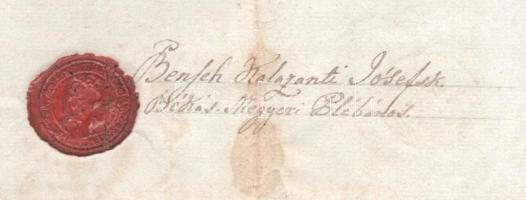 Bensch Kalazanti Jósef sk.
Békás-Megyeri Plébános.